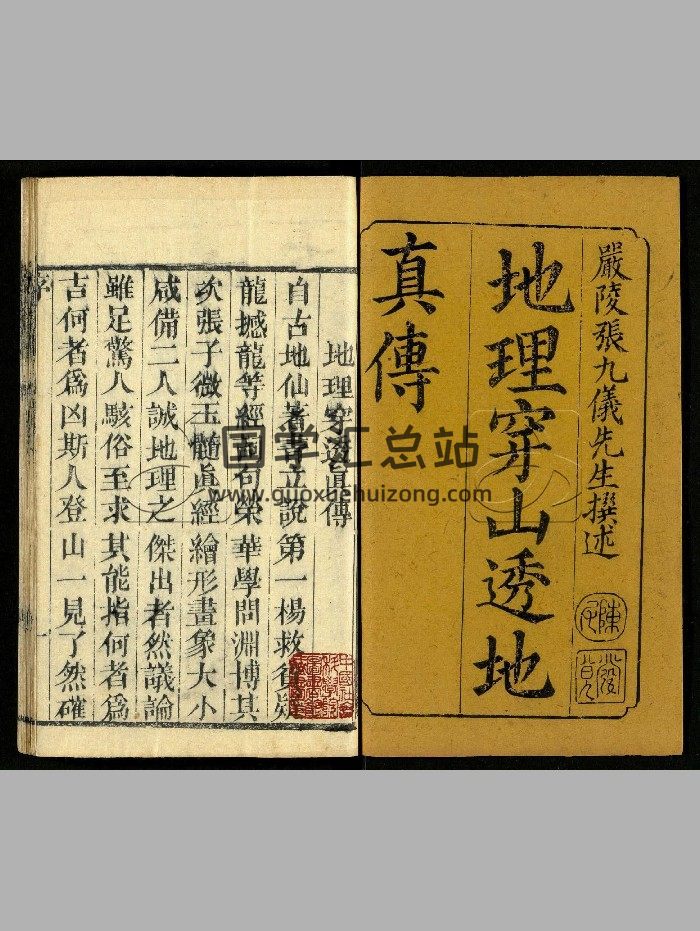 嚴陵張九儀先生撰述
地理穿山透地
真傳
地理穿透眞傳
自古地仙著書立說第一楊救貧疑
龍撼龍等經章句榮華學問淵博其
次張子微玉髓眞經繪形畫象大小
咸備二人誠地理之傑出者然議論
雖足驚人駭俗至求其能指何者爲
吉何者爲凶斯人登山一見了然確
序
一
国学汇总站
www.guoxuehuizong.com